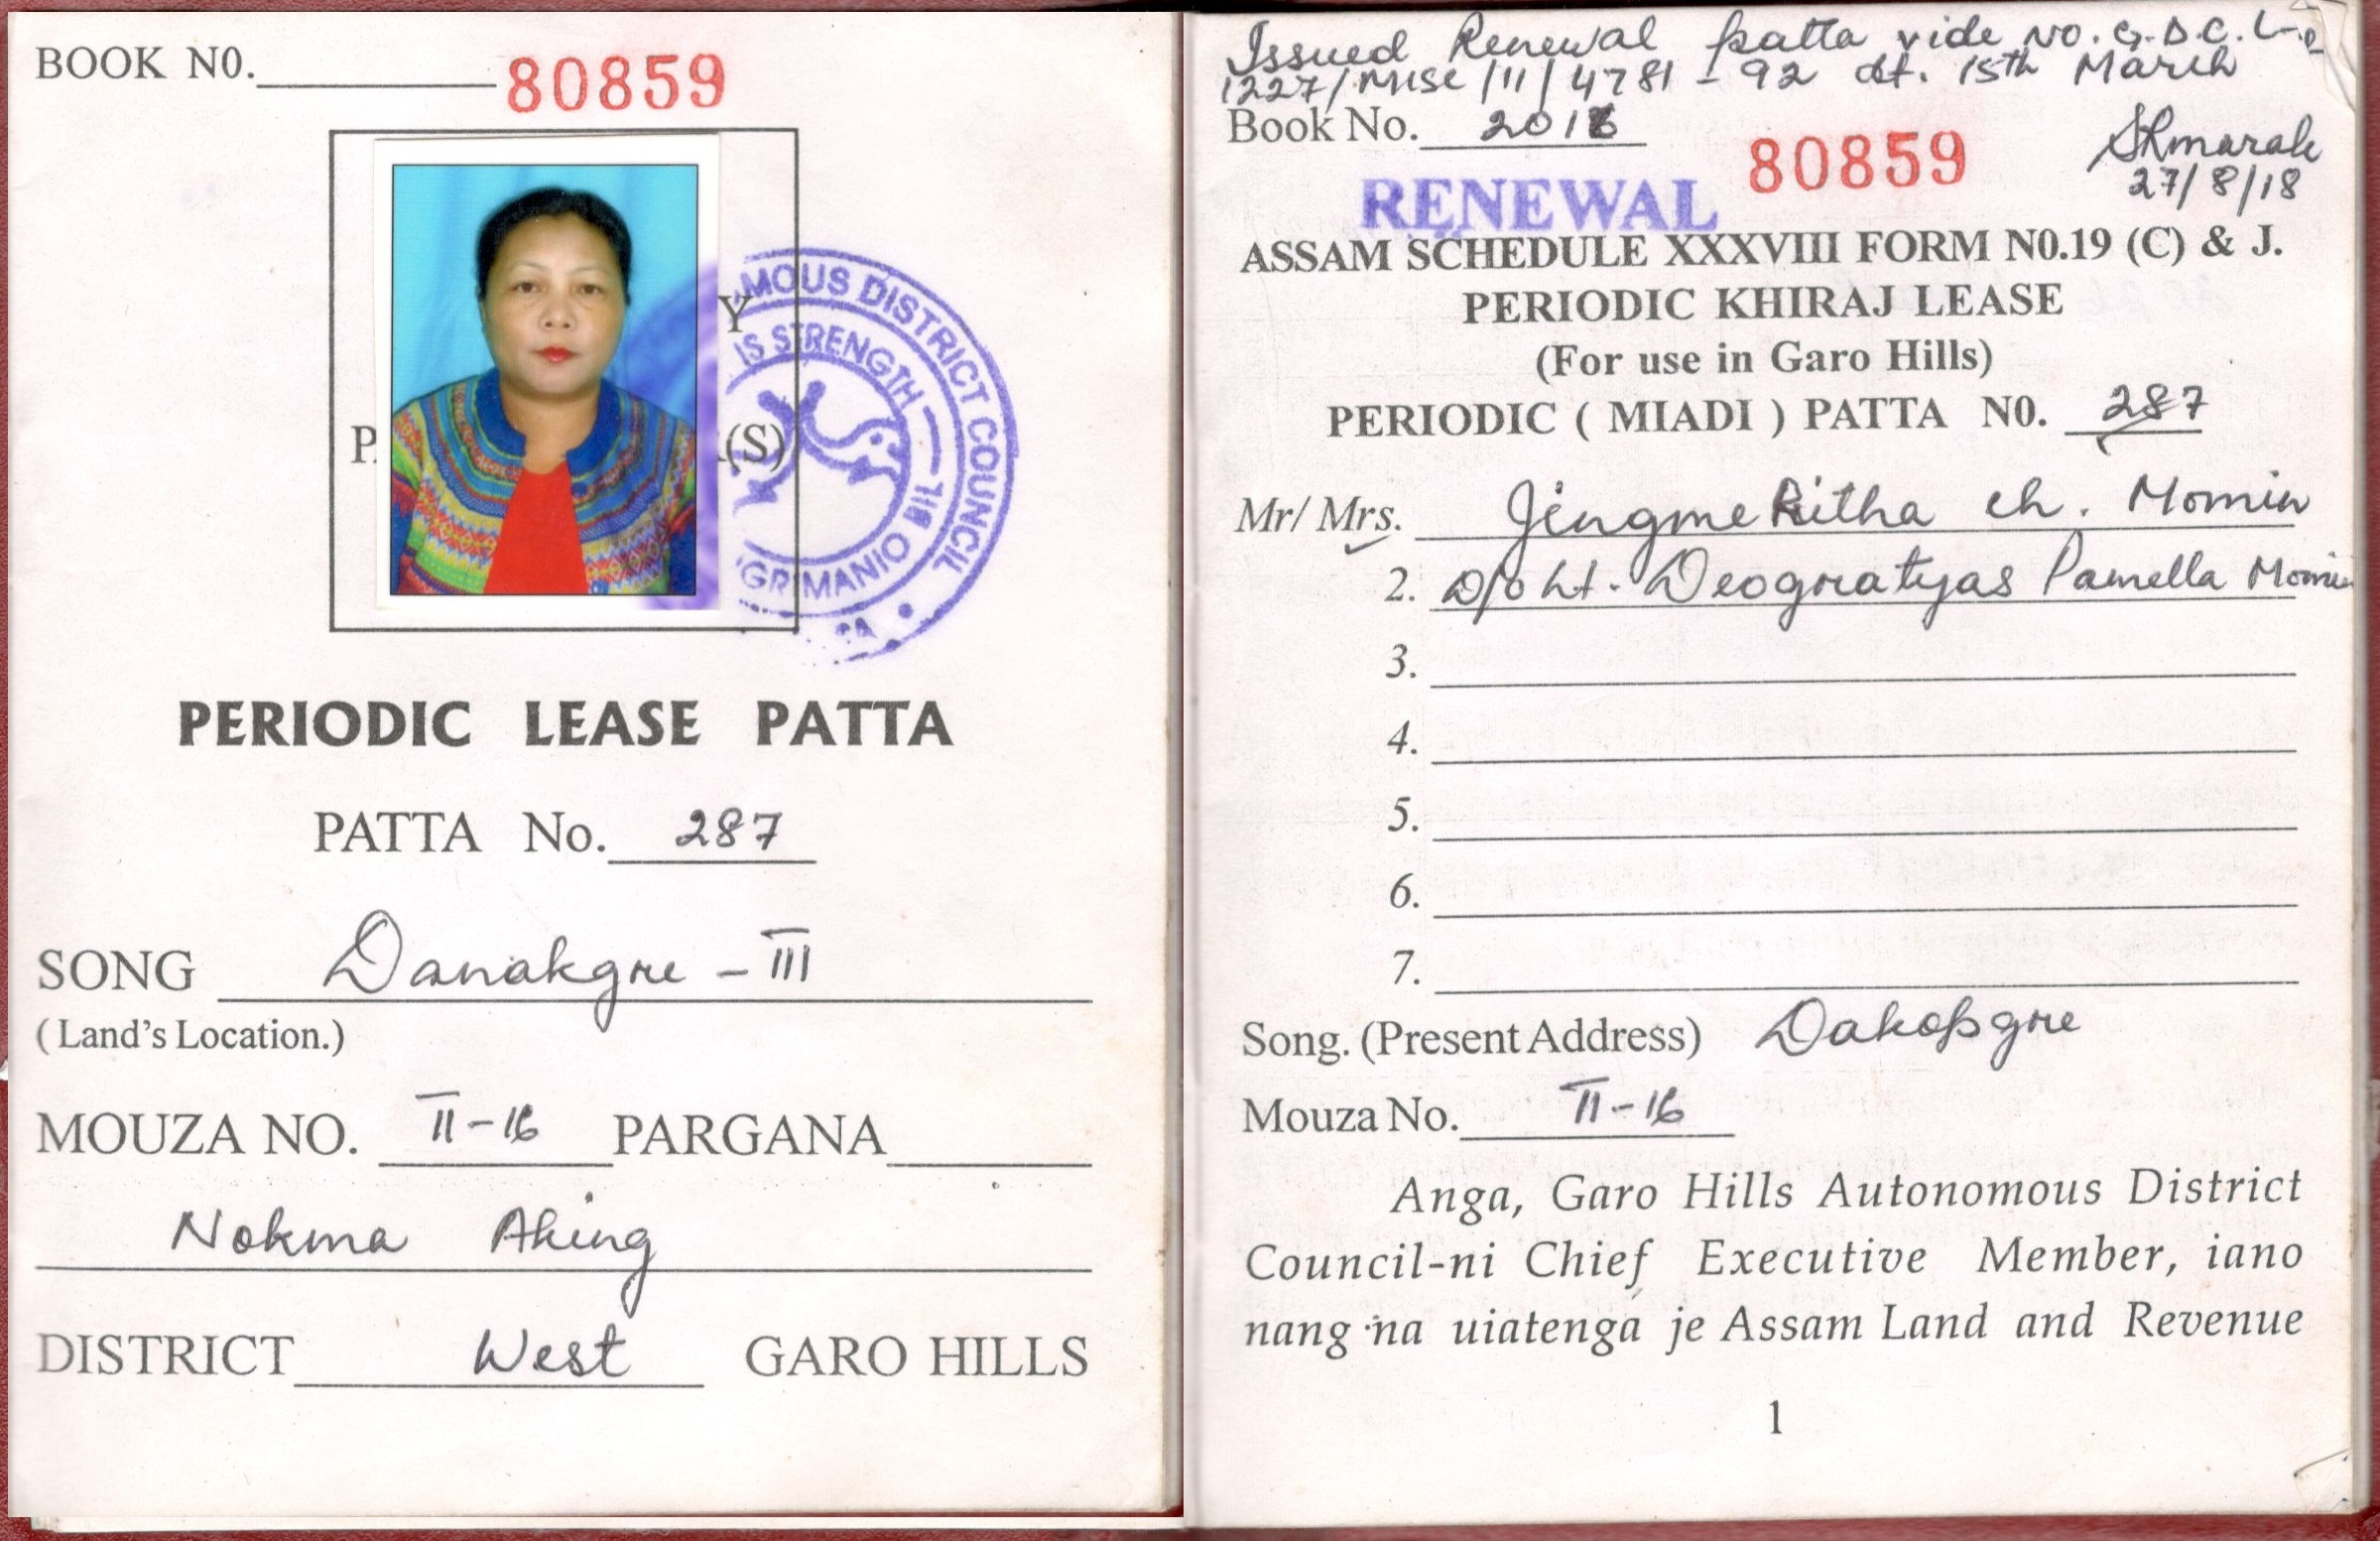 BOOK N0. 80859
Y
(S)
MOUS DISTRICT COUNCIL
IS STRENGTH
GRIMANIO BIL
PERIODIC LEASE PATTA
PATTA No. 287
SONG Danakgre - III
(Land's Location.)
MOUZA NO. II-16 PARGANA
Nokma Aking
DISTRICT West GARO HILLS
Issued Renewal patta vide No. G.D.C.
1227/Misc/II/4781-92 dt. 15th March
Book No. 2018
80859
27/8/18
RENEWAL
ASSAM SCHEDULE XXXVIII FORM N0.19 (C) & J.
PERIODIC KHIRAJ LEASE
(For use in Garo Hills)
PERIODIC ( MIADI ) PATTA N0. 287
Mr/ Mrs. JingmeRitha Ch. Momin
2. D/o Lt. Deogratyas Pamella Momin
3.
4.
5.
6.
7.
Song. (Present Address) Dakopgre
Mouza No. II-16
Anga, Garo Hills Autonomous District
Council-ni Chief Executive Member, iano
nang·na uiatenga je Assam Land and Revenue
1